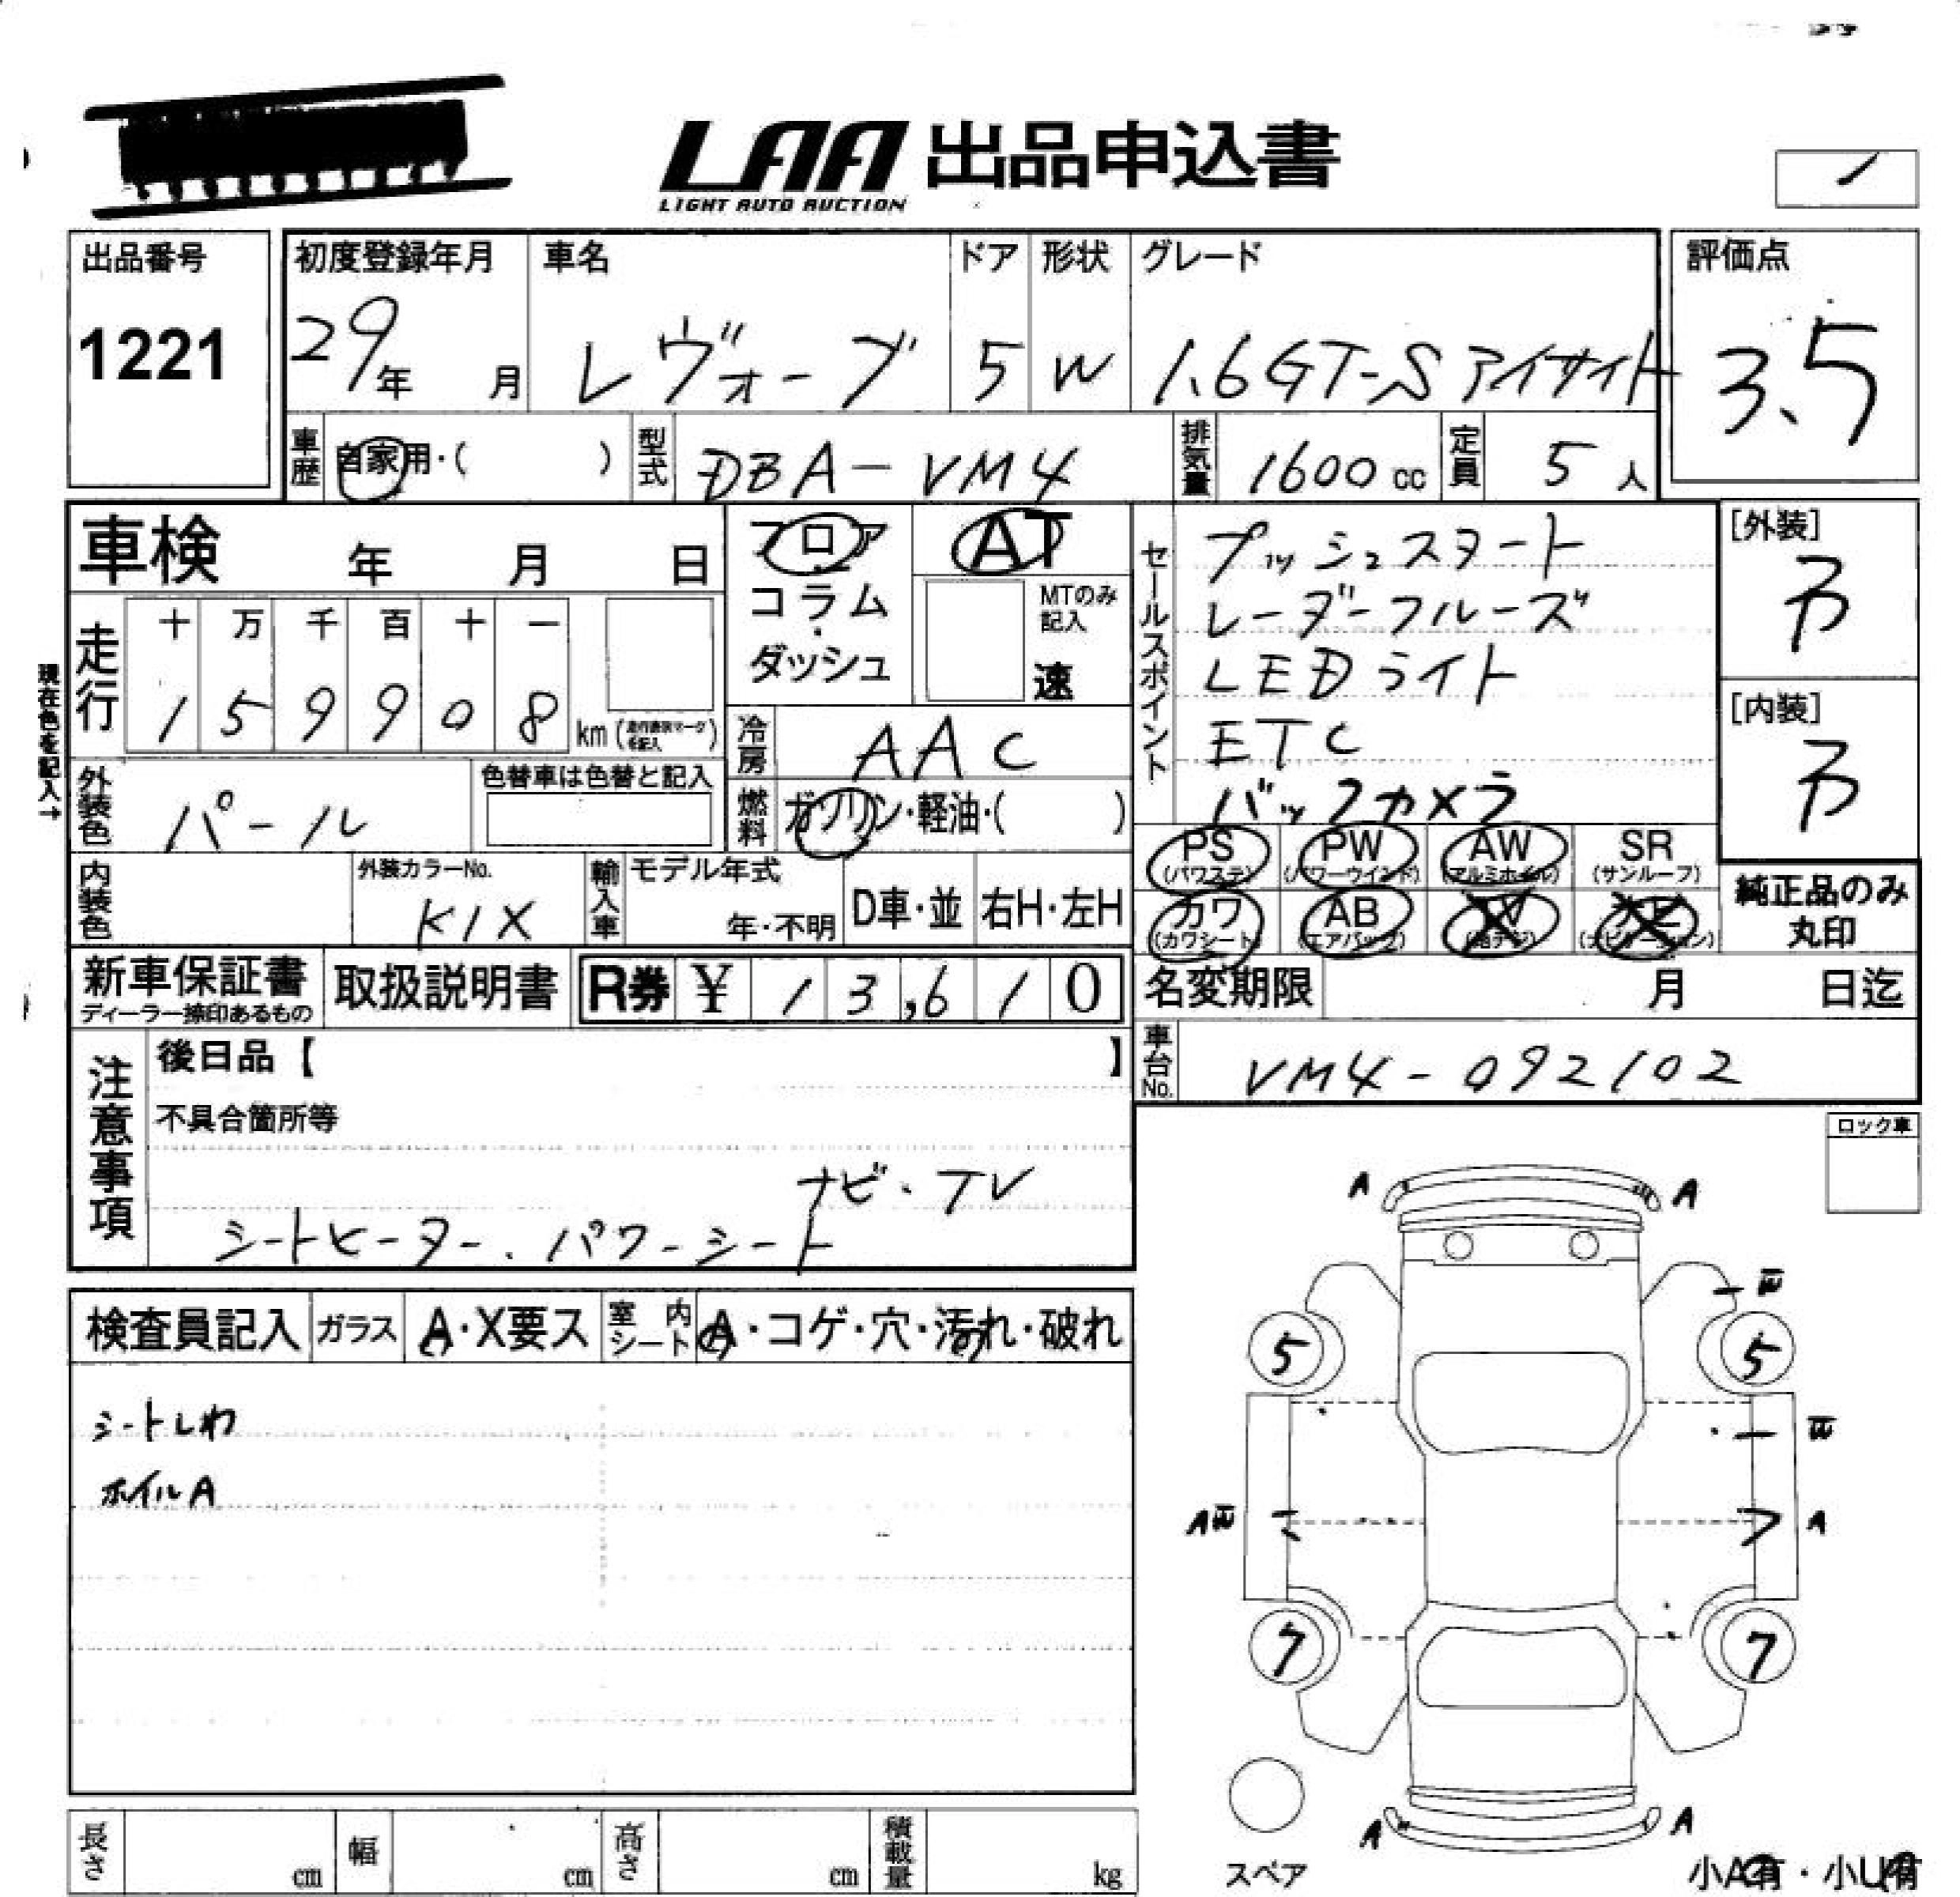 LAA 出品申込書
LIGHT AUTO AUCTION
出品番号
1221
初度登録年月
29年 月
車名
レヴォーブ
ドア
5
形状
W
グレード
1.6GT-S アイサイト
評価点
3.5
車歴 自家用・( )
型式 DBA-VM4
排気量 1600cc
定員 5人
車検 年 月 日
フロア
コラム
・
ダッシュ
AT
MTのみ
記入
速
セールスポイント
プッシュスタート
レーダークルーズ
LEDライト
ETC
バックカメラ
[外装]
[内装]
現在色を記入→
走行
十 万 千 百 十 一
1 5 9 9 0 8 km
冷房 AAC
外装色 パール
色替車は色替と記入
燃料 ガソリン・軽油・( )
PS
(パワステ)
PW
(パワーウインド)
AW
(アルミホイル)
SR
(サンルーフ)
カワ
(カワシート)
AB
(エアバック)
TV
(地デジ)
ナビ
(ナビゲーション)
純正品のみ
丸印
内装色
外装カラーNo.
K1X
輸入車
モデル年式
年・不明
D車・並
右H・左H
新車保証書
ディーラー捺印あるもの
取扱説明書
R券 ¥ 13,610
名変期限 月 日迄
車台No. VM4-092102
注意事項
後日品【 】
不具合箇所等
ナビ・TV
シートヒーター.パワーシート
ロック車
検査員記入
ガラス
A・X要ス
室内シート
A・コゲ・穴・汚れ・破れ
シートしわ
ホイルA
A A
5 5
A
7 7
A A
スペア
小A有・小U有
長さ cm
幅 cm
高さ cm
積載量 kg